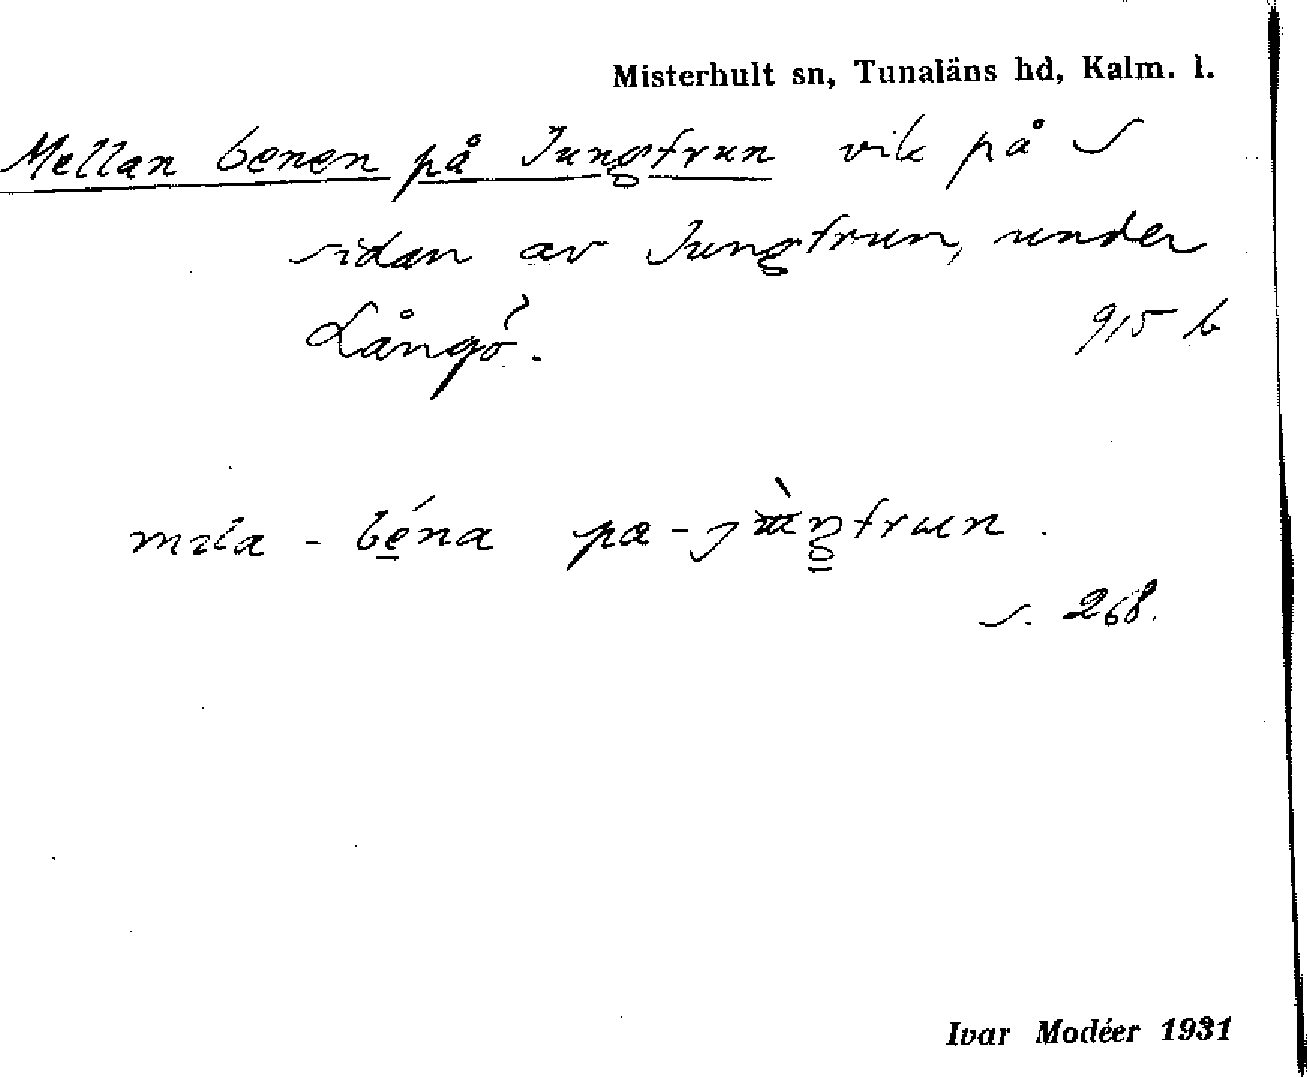 Misterhult sn, Tunaläns hd, Kalm. l.
Mellan benen på Jungfrun vik på S
sidan av Jungfrun, under
Långö.
915 b
mɛla - béna pa - jùŋfrun.
s. 268.
Ivar Modéer 1931